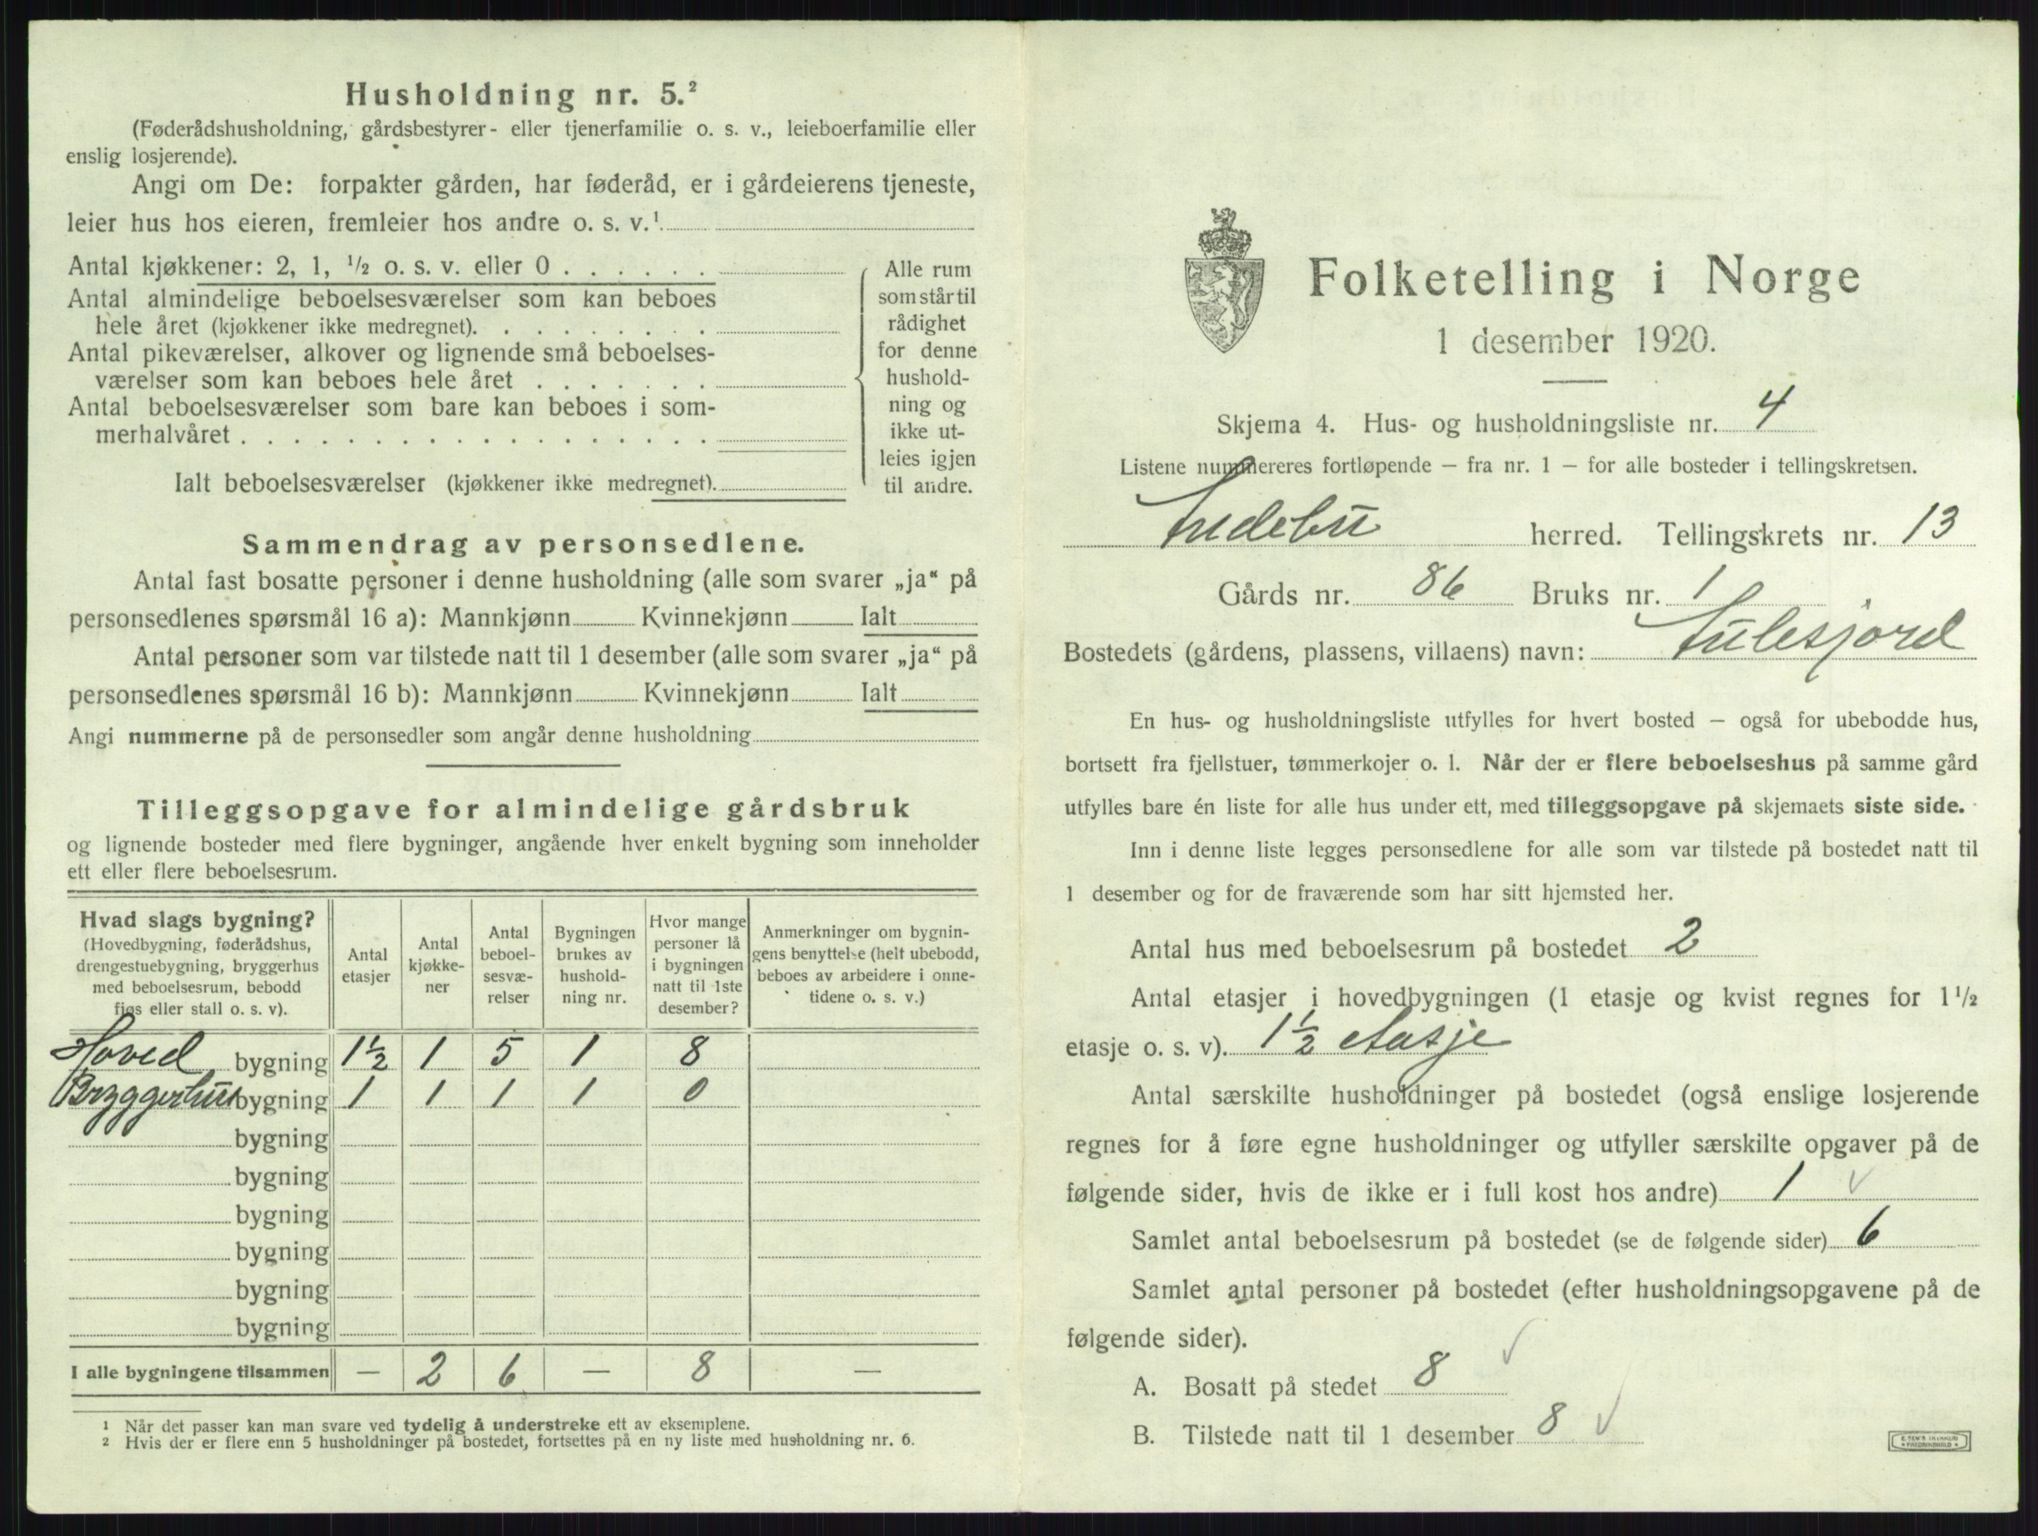 Husholdning nr. 5.²
(Føderådshusholdning, gårdsbestyrer- eller tjenerfamilie o. s. v., leieboerfamilie eller
enslig losjerende).
Angi om De: forpakter gården, har føderåd, er i gårdeierens tjeneste,
leier hus hos eieren, fremleier hos andre o. s. v.¹
Antal kjøkkener: 2, 1, ½ o. s. v. eller 0 . . . . . .
Antal almindelige beboelsesværelser som kan beboes
hele året (kjøkkener ikke medregnet). . . . . . . . .
Antal pikeværelser, alkover og lignende små beboelses-
værelser som kan beboes hele året . . . . . . .
Antal beboelsesværelser som bare kan beboes i som-
merhalvåret . . . . . . . . . . . . . . . . . .
Ialt beboelsesværelser (kjøkkener ikke medregnet).
Alle rum
som står til
rådighet
for denne
hushold-
ning og
ikke ut-
leies igjen
til andre.
Sammendrag av personsedlene.
Antal fast bosatte personer i denne husholdning (alle som svarer „ja“ på
personsedlenes spørsmål 16 a): Mannkjønn Kvinnekjønn Ialt
Antal personer som var tilstede natt til 1 desember (alle som svarer „ja“ på
personsedlenes spørsmål 16 b): Mannkjønn Kvinnekjønn Ialt
Angi nummerne på de personsedler som angår denne husholdning
Tilleggsopgave for almindelige gårdsbruk
og lignende bosteder med flere bygninger, angående hver enkelt bygning som inneholder
ett eller flere beboelsesrum.
Hvad slags bygning?
(Hovedbygning, føderådshus,
drengestuebygning, bryggerhus
med beboelsesrum, bebodd
fjøs eller stall o. s. v).
Antal
etasjer
Antal
kjøkke-
ner
Antal
beboel-
sesvæ-
relser
Bygningen
brukes av
hushold-
ning nr.
Hvor mange
personer lå
i bygningen
natt til 1ste
desember?
Anmerkninger om bygnin-
gens benyttelse (helt ubebodd,
beboes av arbeidere i onne-
tidene o. s. v.)
Hoved bygning 1½ 1 5 1 8
Bryggerhus bygning 1 1 1 1 0
bygning
bygning
bygning
bygning
bygning
bygning
I alle bygningene tilsammen — 2 6 — 8 —
¹ Når det passer kan man svare ved tydelig å understreke ett av eksemplene.
² Hvis der er flere enn 5 husholdninger på bostedet, fortsettes på en ny liste med husholdning nr. 6.
Folketelling i Norge
1 desember 1920.
Skjema 4. Hus- og husholdningsliste nr. 4
Listene nummereres fortløpende – fra nr. 1 – for alle bosteder i tellingskretsen.
herred. Tellingskrets nr. 13
Gårds nr. 86 Bruks nr. 1
Bostedets (gårdens, plassens, villaens) navn:
En hus- og husholdningsliste utfylles for hvert bosted – også for ubebodde hus,
bortsett fra fjellstuer, tømmerkojer o. l. Når der er flere beboelseshus på samme gård
utfylles bare én liste for alle hus under ett, med tilleggsopgave på skjemaets siste side.
Inn i denne liste legges personsedlene for alle som var tilstede på bostedet natt til
1 desember og for de fraværende som har sitt hjemsted her.
Antal hus med beboelsesrum på bostedet 2
Antal etasjer i hovedbygningen (1 etasje og kvist regnes for 1½
etasje o. s. v). 1½ etasje
Antal særskilte husholdninger på bostedet (også enslige losjerende
regnes for å føre egne husholdninger og utfyller særskilte opgaver på de
følgende sider, hvis de ikke er i full kost hos andre) 1
Samlet antal beboelsesrum på bostedet (se de følgende sider) 6
Samlet antal personer på bostedet (efter husholdningsopgavene på de
følgende sider).
A. Bosatt på stedet 8
B. Tilstede natt til 1 desember 8